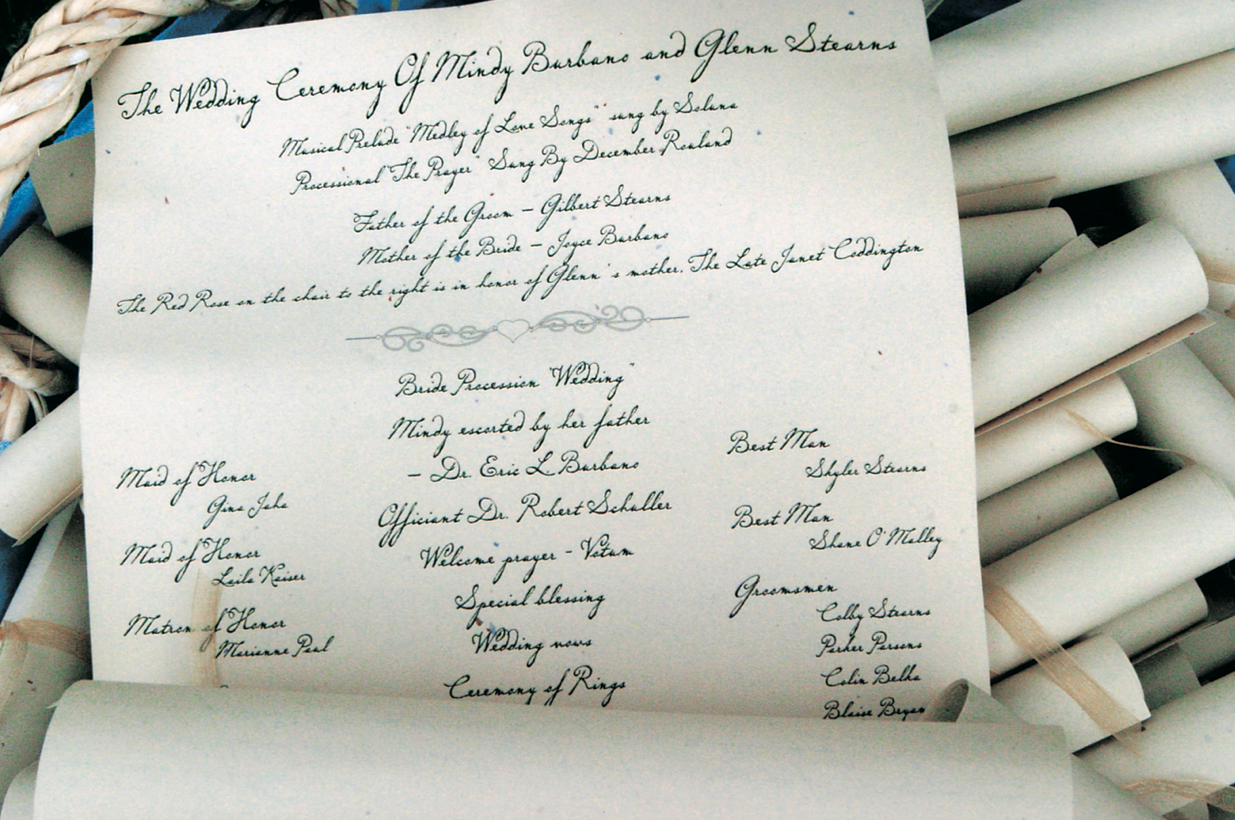 The Wedding Ceremony Of Mindy Burbano and Glenn Stearns
Musical Prelude "Medley of Love Songs" sung by Solana
Processional "The Prayer" Sung By December Rouland
Father of the Groom - Gilbert Stearns
Mother of the Bride - Joyce Burbano
The Red Rose on the chair to the right is in honor of Glenn's mother, The Late Janet Coddington
Bride Procession "Wedding"
Mindy escorted by her father
- Dr. Eric L. Burbano
Officiant Dr. Robert Schuller
Welcome prayer - Votum
Special blessing
Wedding vows
Ceremony of Rings
Maid of Honor
Gina Jaha
Maid of Honor
Laila Kaiser
Matron of Honor
Marianne Paul
Best Man
Skyler Stearns
Best Man
Shane O'Malley
Groomsmen
Colby Stearns
Parker Parsons
Colin Belka
Blaise Bryan